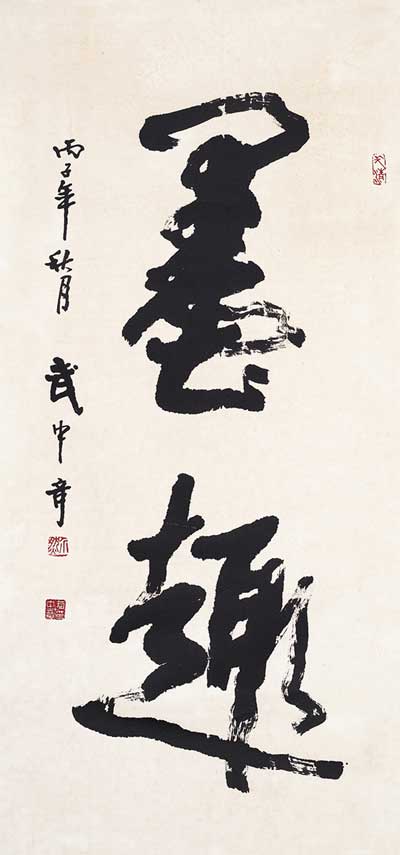 墨趣
丙子年秋月 武中奇